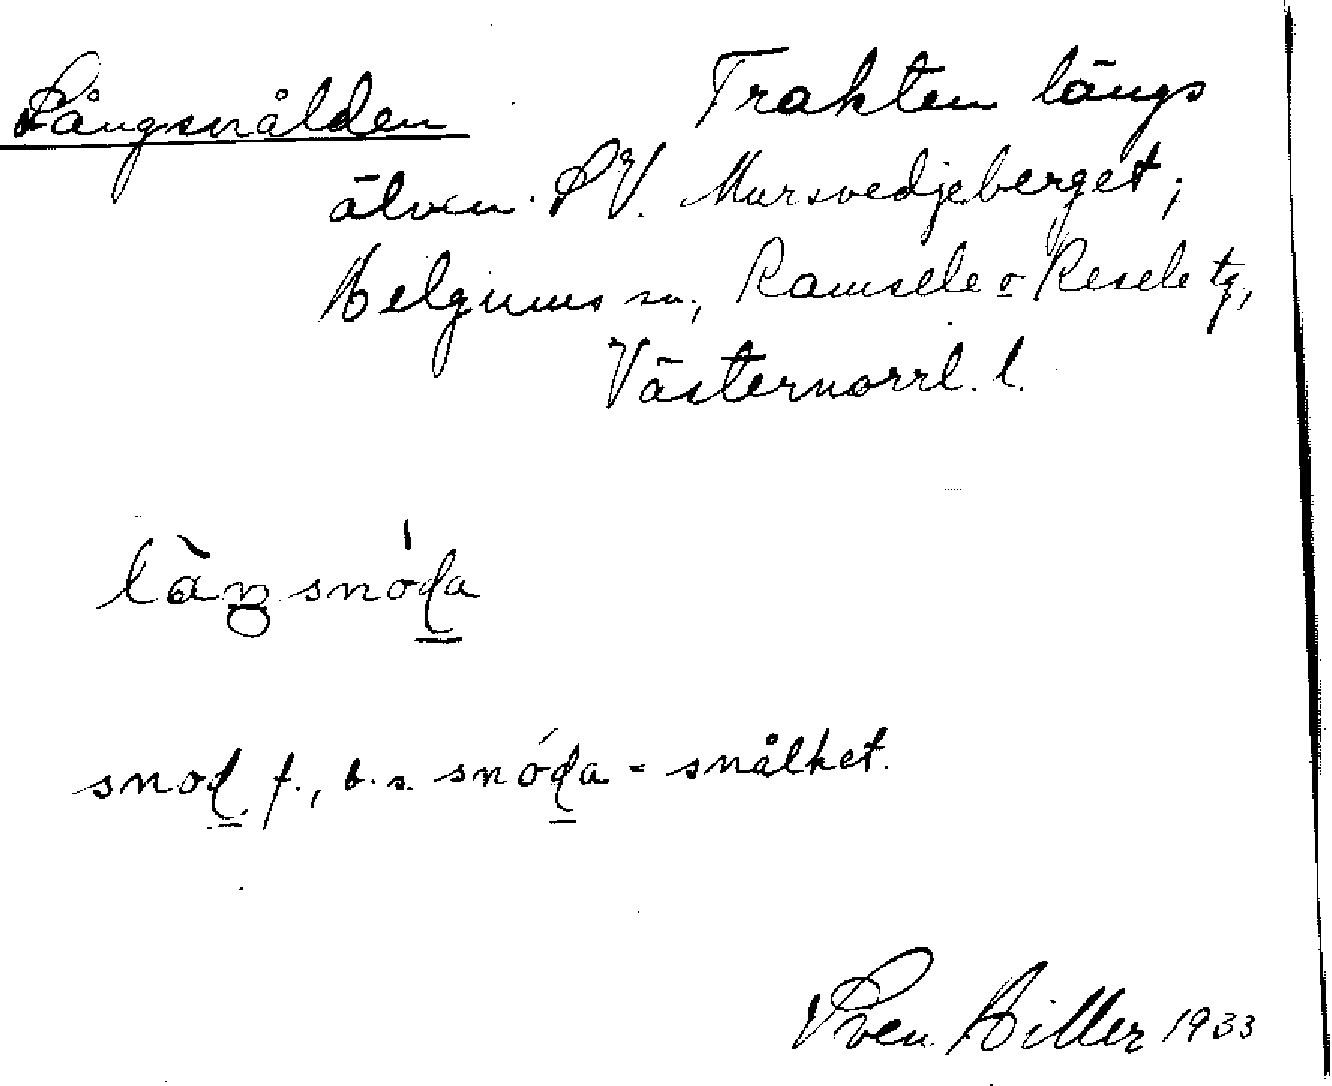 Långsnålden Trakten längs
älven. SV. Morsvedjeberget;
Helgums sn, Ramsele o Resele tg,
Västernorrl. l.
là̄ŋsnóḏa
snoḏ f., b. s. snóḏa - snålhet.
Sven Hiller 1933